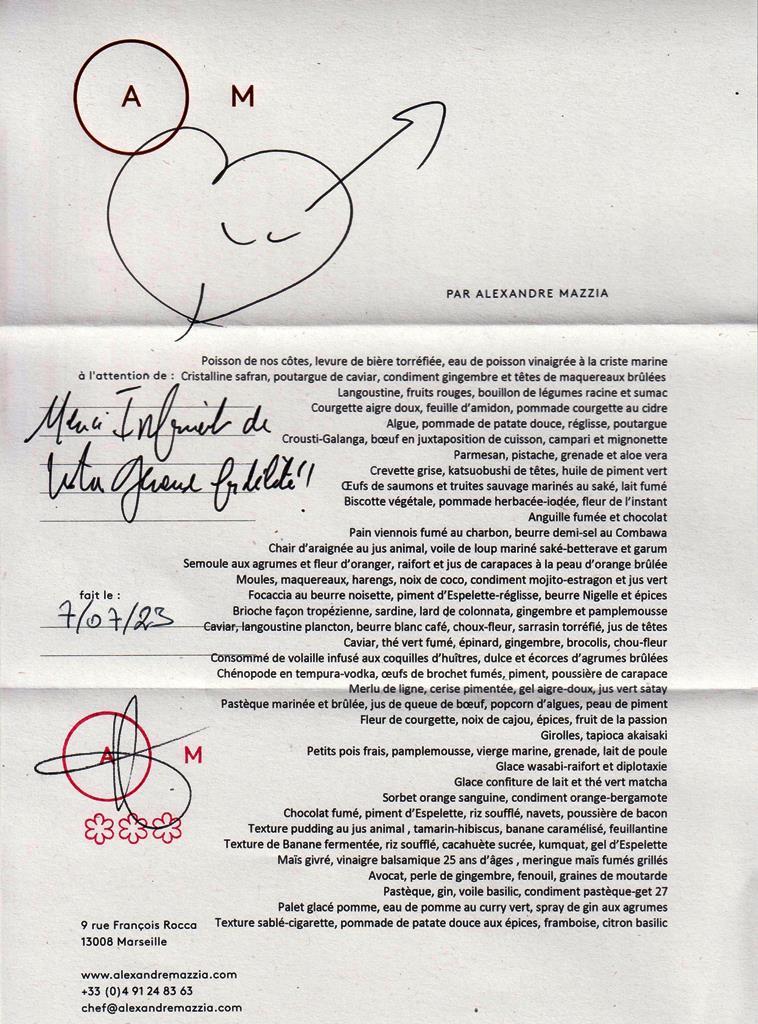 A M
PAR ALEXANDRE MAZZIA
Poisson de nos côtes, levure de bière torréfiée, eau de poisson vinaigrée à la criste marine
à l'attention de :
Cristalline safran, poutargue de caviar, condiment gingembre et têtes de maquereaux brûlées
Langoustine, fruits rouges, bouillon de légumes racine et sumac
Courgette aigre doux, feuille d'amidon, pommade courgette au cidre
Algue, pommade de patate douce, réglisse, poutargue
Crousti-Galanga, bœuf en juxtaposition de cuisson, campari et mignonette
Parmesan, pistache, grenade et aloe vera
Crevette grise, katsuobushi de têtes, huile de piment vert
Œufs de saumons et truites sauvage marinés au saké, lait fumé
Biscotte végétale, pommade herbacée-iodée, fleur de l'instant
Anguille fumée et chocolat
Pain viennois fumé au charbon, beurre demi-sel au Combawa
Chair d'araignée au jus animal, voile de loup mariné saké-betterave et garum
Semoule aux agrumes et fleur d'oranger, raifort et jus de carapaces à la peau d'orange brûlée
Moules, maquereaux, harengs, noix de coco, condiment mojito-estragon et jus vert
Focaccia au beurre noisette, piment d'Espelette-réglisse, beurre Nigelle et épices
Brioche façon tropézienne, sardine, lard de colonnata, gingembre et pamplemousse
Caviar, langoustine plancton, beurre blanc café, choux-fleur, sarrasin torréfié, jus de têtes
Caviar, thé vert fumé, épinard, gingembre, brocolis, chou-fleur
Consommé de volaille infusé aux coquilles d'huîtres, dulce et écorces d'agrumes brûlées
Chénopode en tempura-vodka, œufs de brochet fumés, piment, poussière de carapace
Merlu de ligne, cerise pimentée, gel aigre-doux, jus vert satay
Pastèque marinée et brûlée, jus de queue de bœuf, popcorn d'algues, peau de piment
Fleur de courgette, noix de cajou, épices, fruit de la passion
Girolles, tapioca akaisaki
Petits pois frais, pamplemousse, vierge marine, grenade, lait de poule
Glace wasabi-raifort et diplotaxie
Glace confiture de lait et thé vert matcha
Sorbet orange sanguine, condiment orange-bergamote
Chocolat fumé, piment d'Espelette, riz soufflé, navets, poussière de bacon
Texture pudding au jus animal , tamarin-hibiscus, banane caramélisé, feuillantine
Texture de Banane fermentée, riz soufflé, cacahuète sucrée, kumquat, gel d'Espelette
Maïs givré, vinaigre balsamique 25 ans d'âges , meringue maïs fumés grillés
Avocat, perle de gingembre, fenouil, graines de moutarde
Pastèque, gin, voile basilic, condiment pastèque-get 27
Palet glacé pomme, eau de pomme au curry vert, spray de gin aux agrumes
Texture sablé-cigarette, pommade de patate douce aux épices, framboise, citron basilic
Merci Infiniment de
fidélité !
fait le :
7/07/23
A M
9 rue François Rocca
13008 Marseille
www.alexandremazzia.com
+33 (0)4 91 24 83 63
chef@alexandremazzia.com